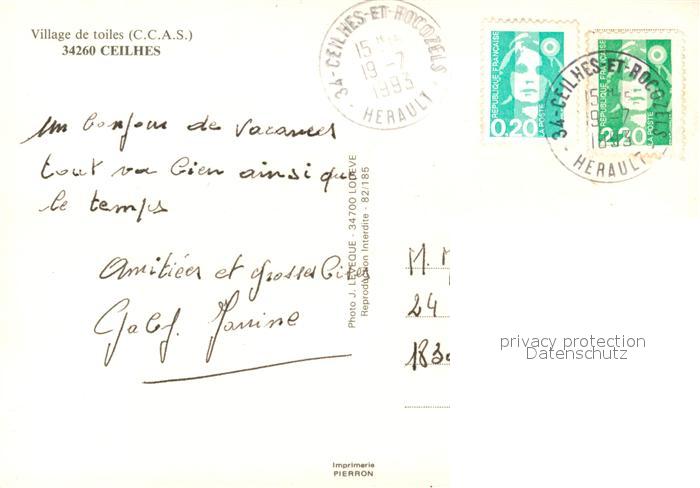 Village de toiles (C.C.A.S.)
34260 CEILHES
34-CEILHES-ET-ROCOZELS
15 H
19-7
1993
- HERAULT -
REPUBLIQUE FRANÇAISE
0,20
LA POSTE
REPUBLIQUE FRANÇAISE
2,20
LA POSTE
34-CEILHES-ET-ROCOZELS
15 H
19-7
1993
- HERAULT -
un bonjour de vacances
tout va bien ainsi que
le temps
Amitiées et grosses bises
Janine
Photo J. LEVEQUE - 34700 LODEVE
Reproduction Interdite - 82/185
M. M
24
183
privacy protection
Datenschutz
Imprimerie
PIERRON